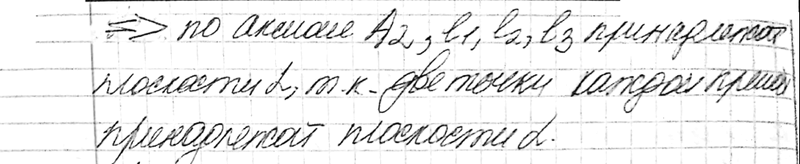 => по аксиоме А2, b1, b2, b3 принадлежат
плоскости α, т.к. две точки каждой прямой
принадлежат плоскости α.